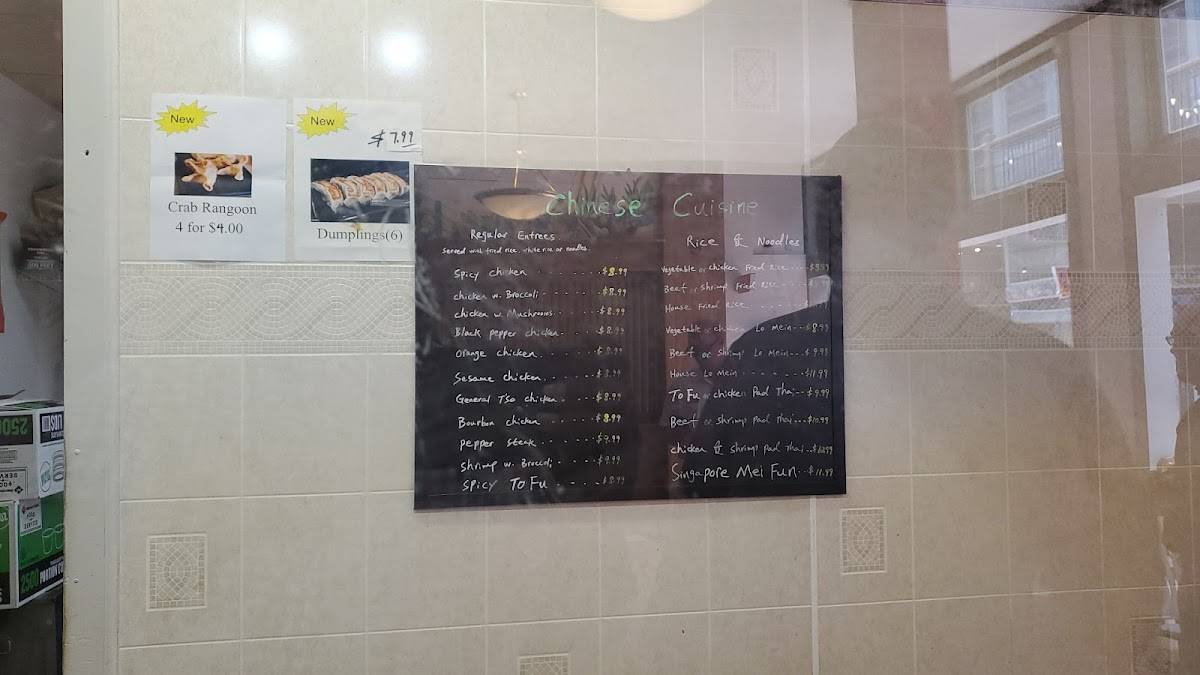 New
Crab Rangoon
4 for $4.00
New
$7.99
Dumplings(6)
Chinese Cuisine
Regular Entrees
Served with fried rice, white rice or noodles.
Spicy chicken ........ $8.99
chicken w. Broccoli ...... $8.99
chicken w. Mushrooms ..... $8.99
Black pepper chicken ..... $8.99
Orange chicken ....... $8.99
Sesame chicken ....... $8.99
General Tso chicken .... $8.99
Bourbon chicken ...... $8.99
Pepper Steak ....... $9.99
Shrimp w. Broccoli ..... $9.99
Spicy ToFu ..... $8.99
Rice & Noodles
Vegetable or chicken Fried Rice
Beef or shrimp Fried Rice
House Fried Rice
Vegetable or chicken Lo mein --- $8.99
Beef or shrimp Lo Mein --- $9.99
House Lo Mein - - - - - - $11.99
ToFu or chicken Pad Thai -- $9.99
Beef or shrimp pad thai -- $10.99
chicken & shrimp pad thai
Singapore Mei Fun -- $11.99
2500
2500